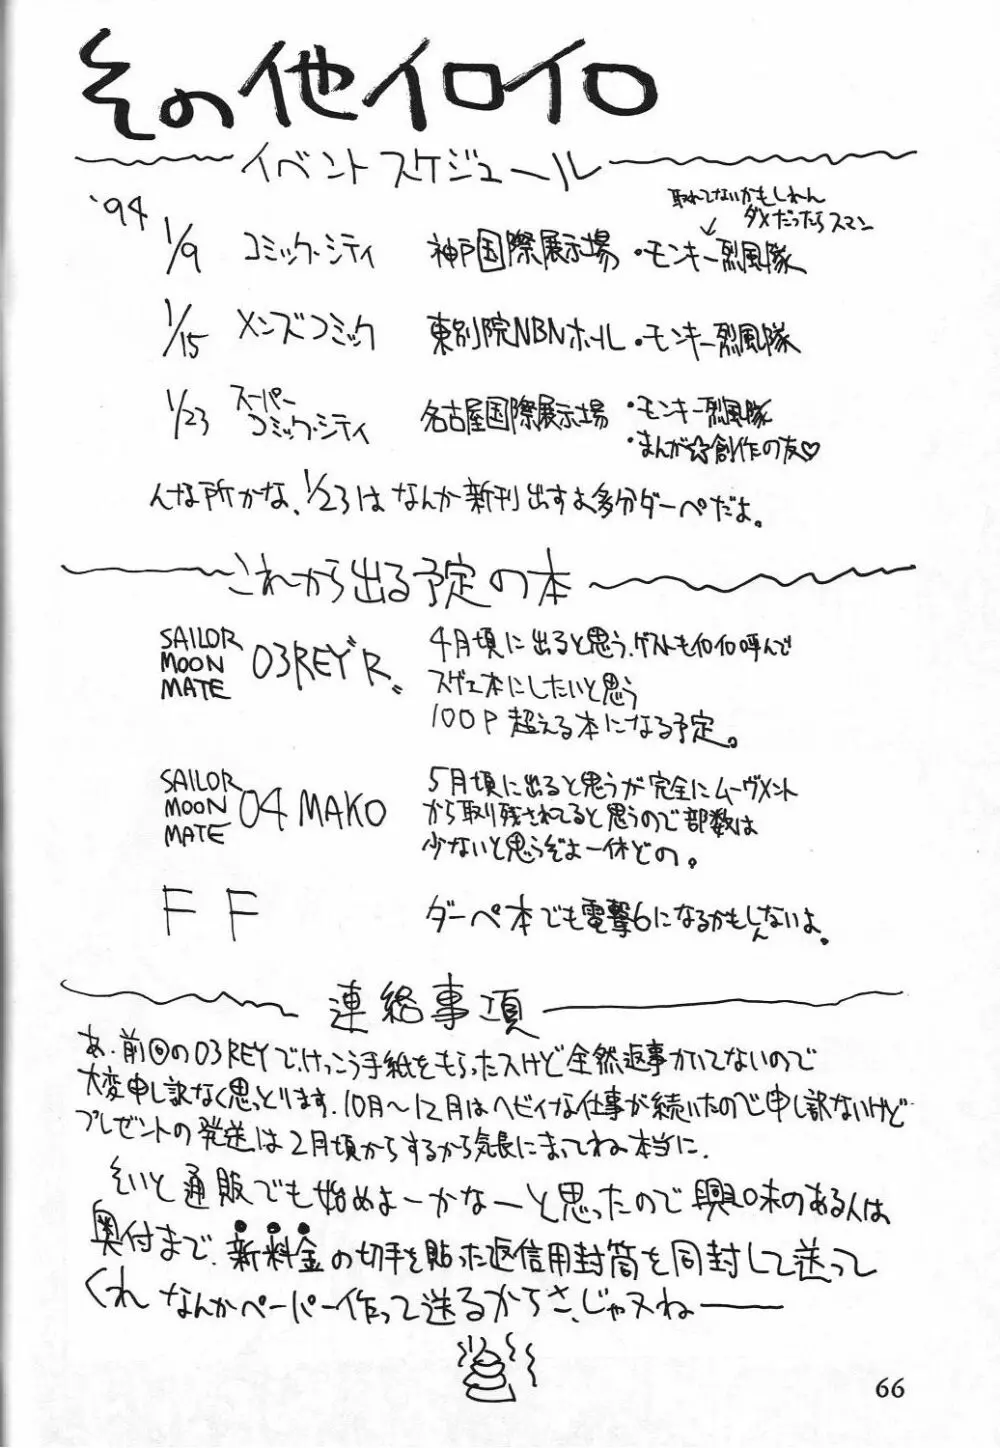 その他イロイロ
イベントスケジュール
'94
取れてないかもしれん
ダメだったらスマン
1/9 コミック・シティ 神戸国際展示場 ・モンキー烈風隊
1/15 メンズコミック 東別院NBNホール ・モンキー烈風隊
1/23 スーパー
コミック・シティ 名古屋国際展示場 ・モンキー烈風隊
・まんが☆創作の友♡
んな所かな、1/23はなんか新刊出すよ多分ダーペだよ。
これから出る予定の本
SAILOR
MOON
MATE
03REY"R"
4月頃に出ると思う、ゲストもイロイロ呼んで
スゲェ本にしたいと思う
100P超える本になる予定。
SAILOR
MOON
MATE
04 MAKO
5月頃に出ると思うが完全にムーヴメント
から取り残されてると思うので部数は
少ないと思うぞよ一休どの。
FF
ダーペ本でも電撃6になるかもしんないよ。
連絡事項
あ、前回の03REYで、けっこう手紙をもらったスけど全然返事かいてないので
大変申し訳なく思っとります、10月〜12月はヘビィな仕事が続いたので申し訳ないけど
プレゼントの発送は2月頃からするから気長にまってね本当に、
そいと通販でも始めよーかなーと思ったので興味のある人は
奥付まで、新料金の切手を貼った返信用封筒を同封して送って
くれ なんかペーパー作って送るからさ、じゃスねー
66